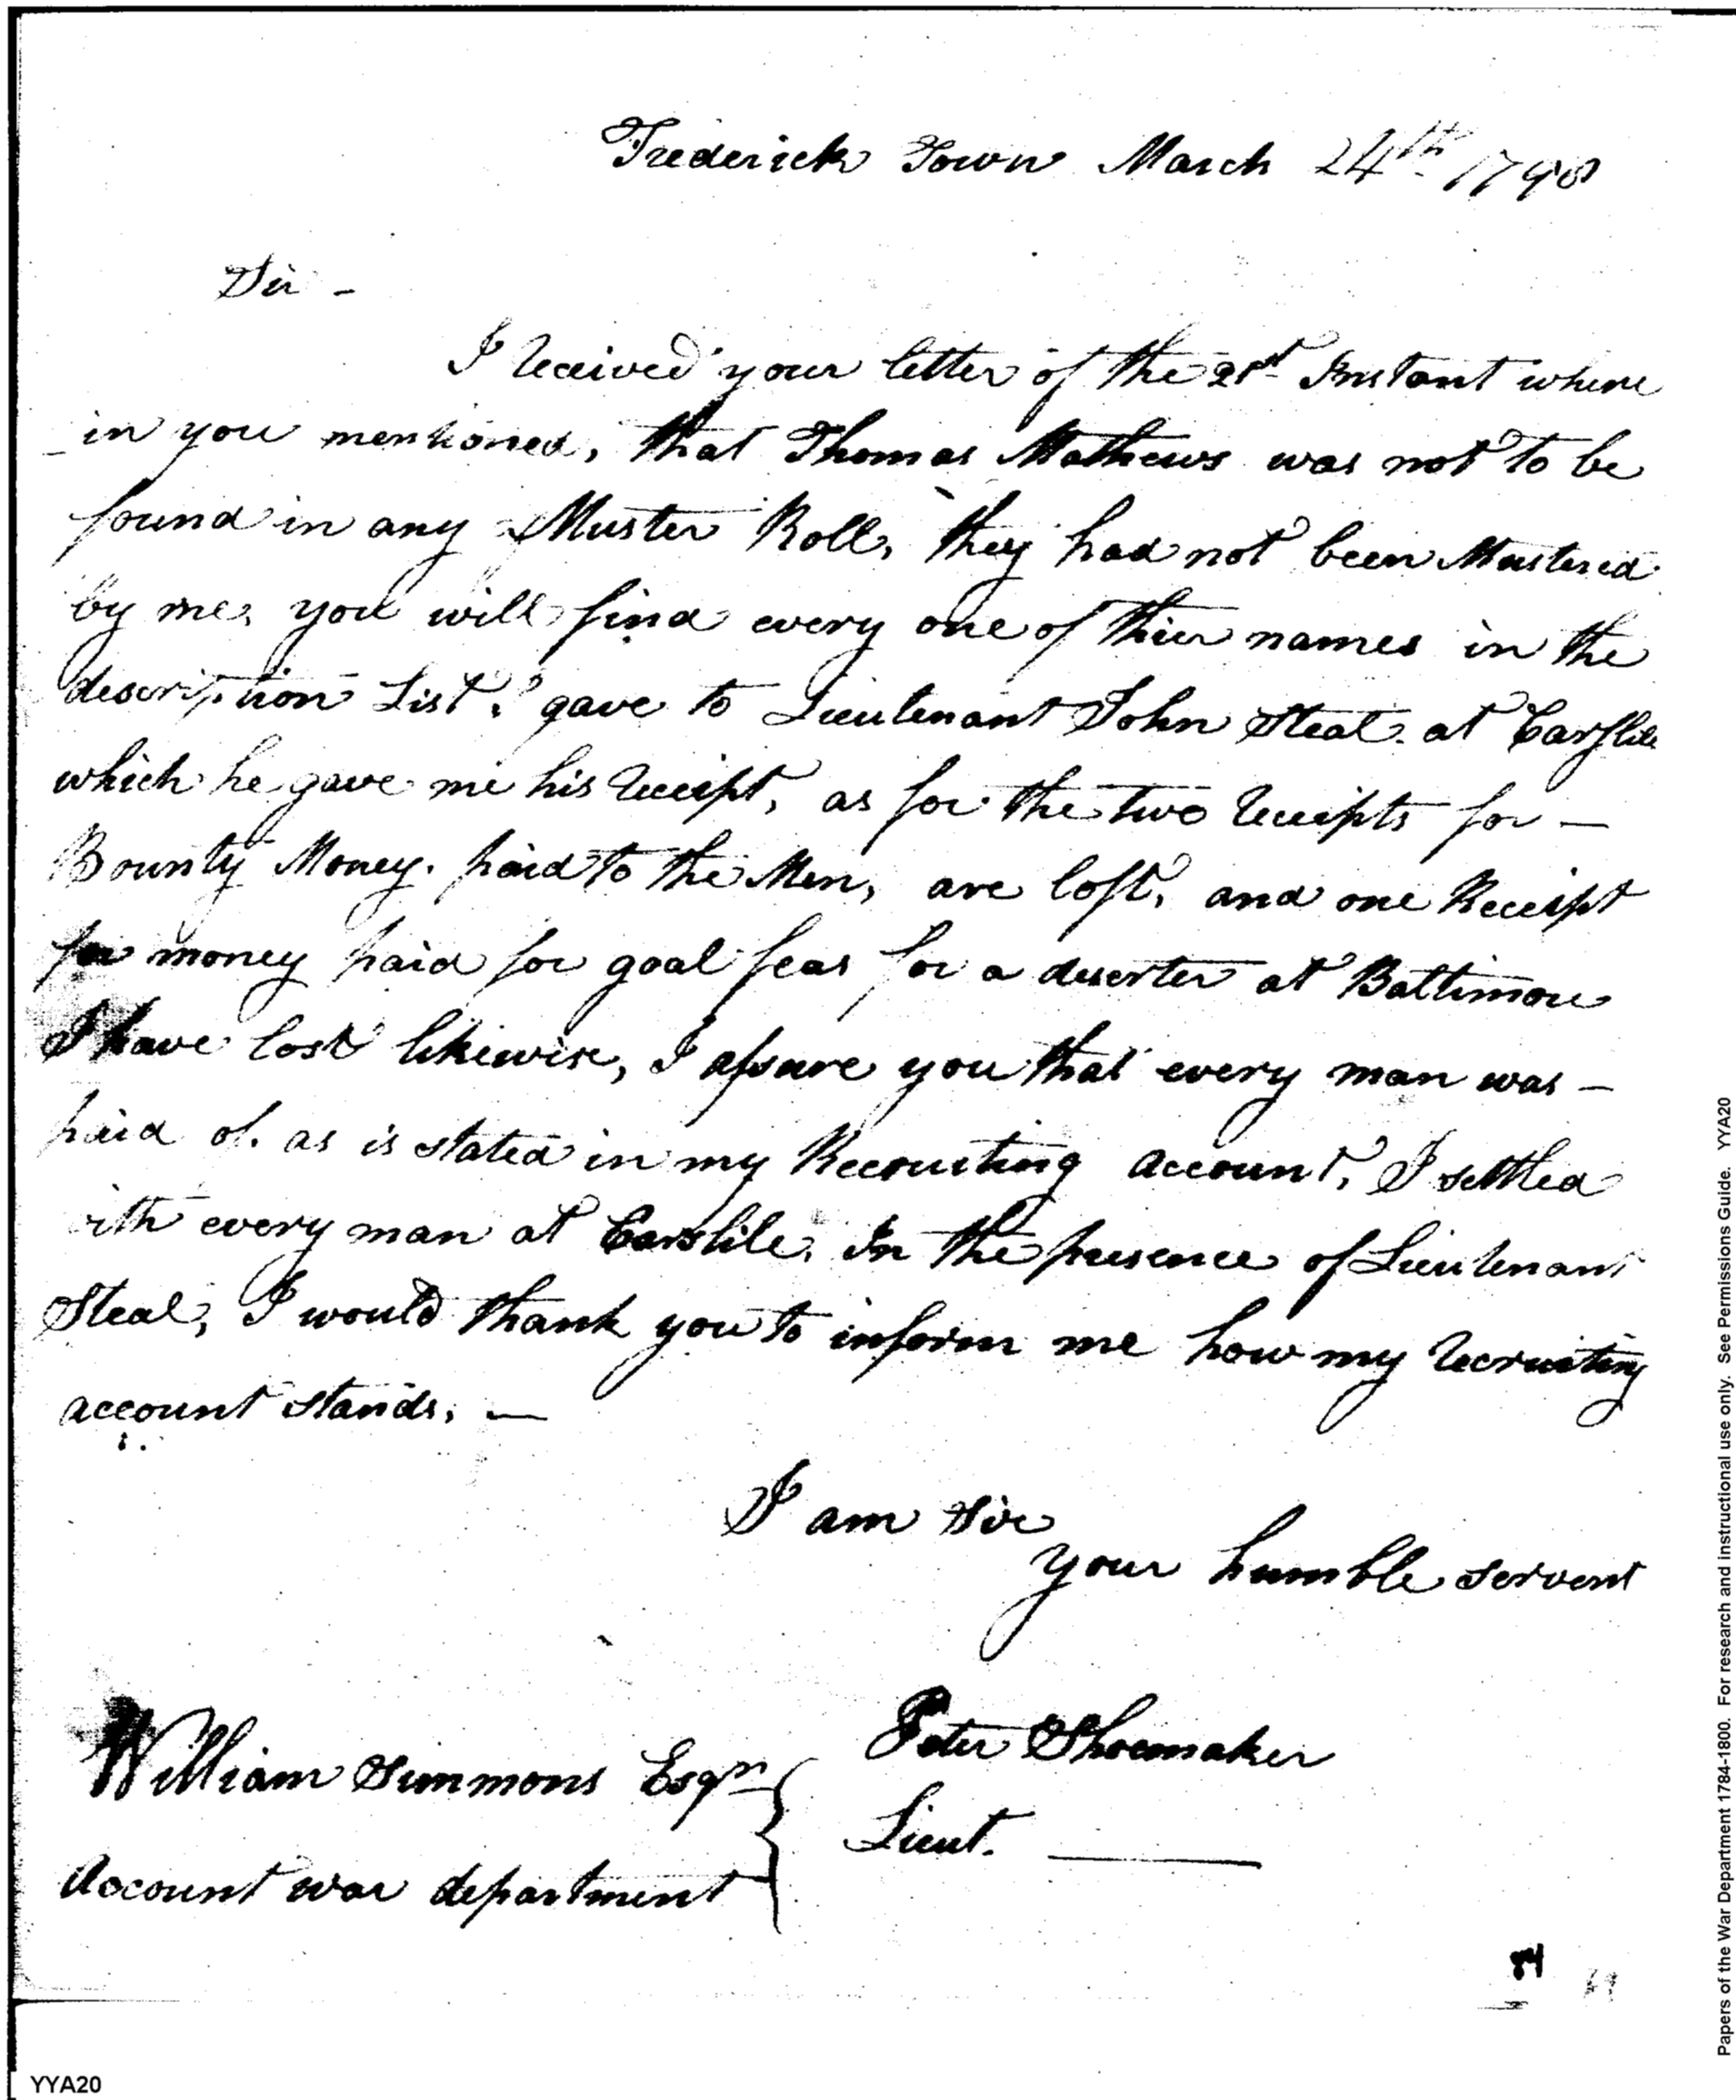 Frederick Town March 24th 1798
Sir -
I received your letter of the 21st Instant where
in you mentioned, that Thomas Mathews was not to be
found in any Muster Roll, they had not been Mustered
by me, you will find every one of thier names in the
description List, I gave to Lieutenant John Steal at Carslile
which he gave me his receipt, as for the two receipts for —
Bounty Money. paid to the Men, are lost, and one Receipt
for money paid for goal feas for a deserter at Baltimore
I have lost likewise, I assure you that every man was —
paid of. as is stated in my Recruiting account, I settled
with every man at Carslile, In the presence of Lieutenant
Steal, I would thank you to inform me how my recruiting
account stands, —
I am Sir
your humble servent
Peter Shoemaker
Lieut.
William Simmons Esqr
Account war department
84
69
YYA20
Papers of the War Department 1784-1800. For research and instructional use only. See Permissions Guide. YYA20